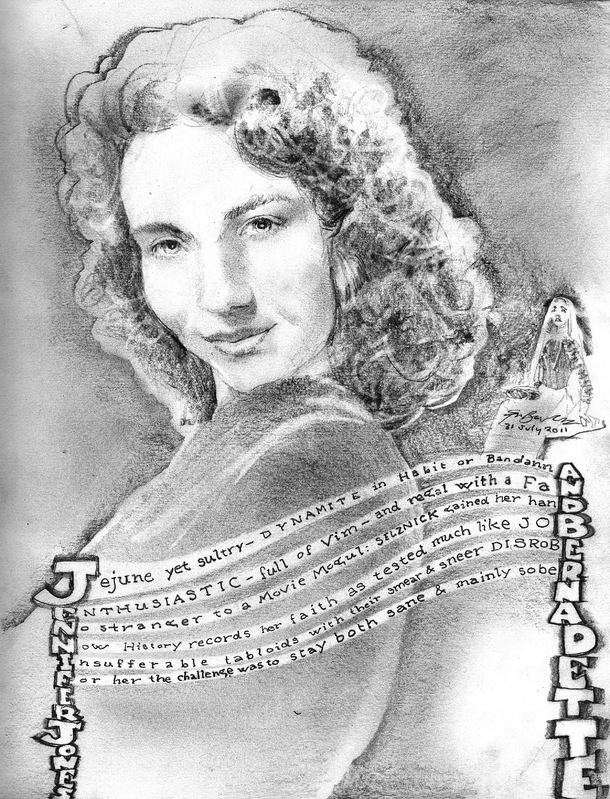 31 July 2011
Jejune yet sultry— DYNAMITE in Habit or Bandann
NTHUSIASTIC - full of Vim - and regal with a Fa
o stranger to a Movie Mogul: SELZNICK gained her han
ow History records her faith as tested much like JO
nsufferable tabloids with their smear & sneer DISROB
or her the challenge was to stay both sane & mainly sobe
JENNIFERJONES
ANDBERNADETTE